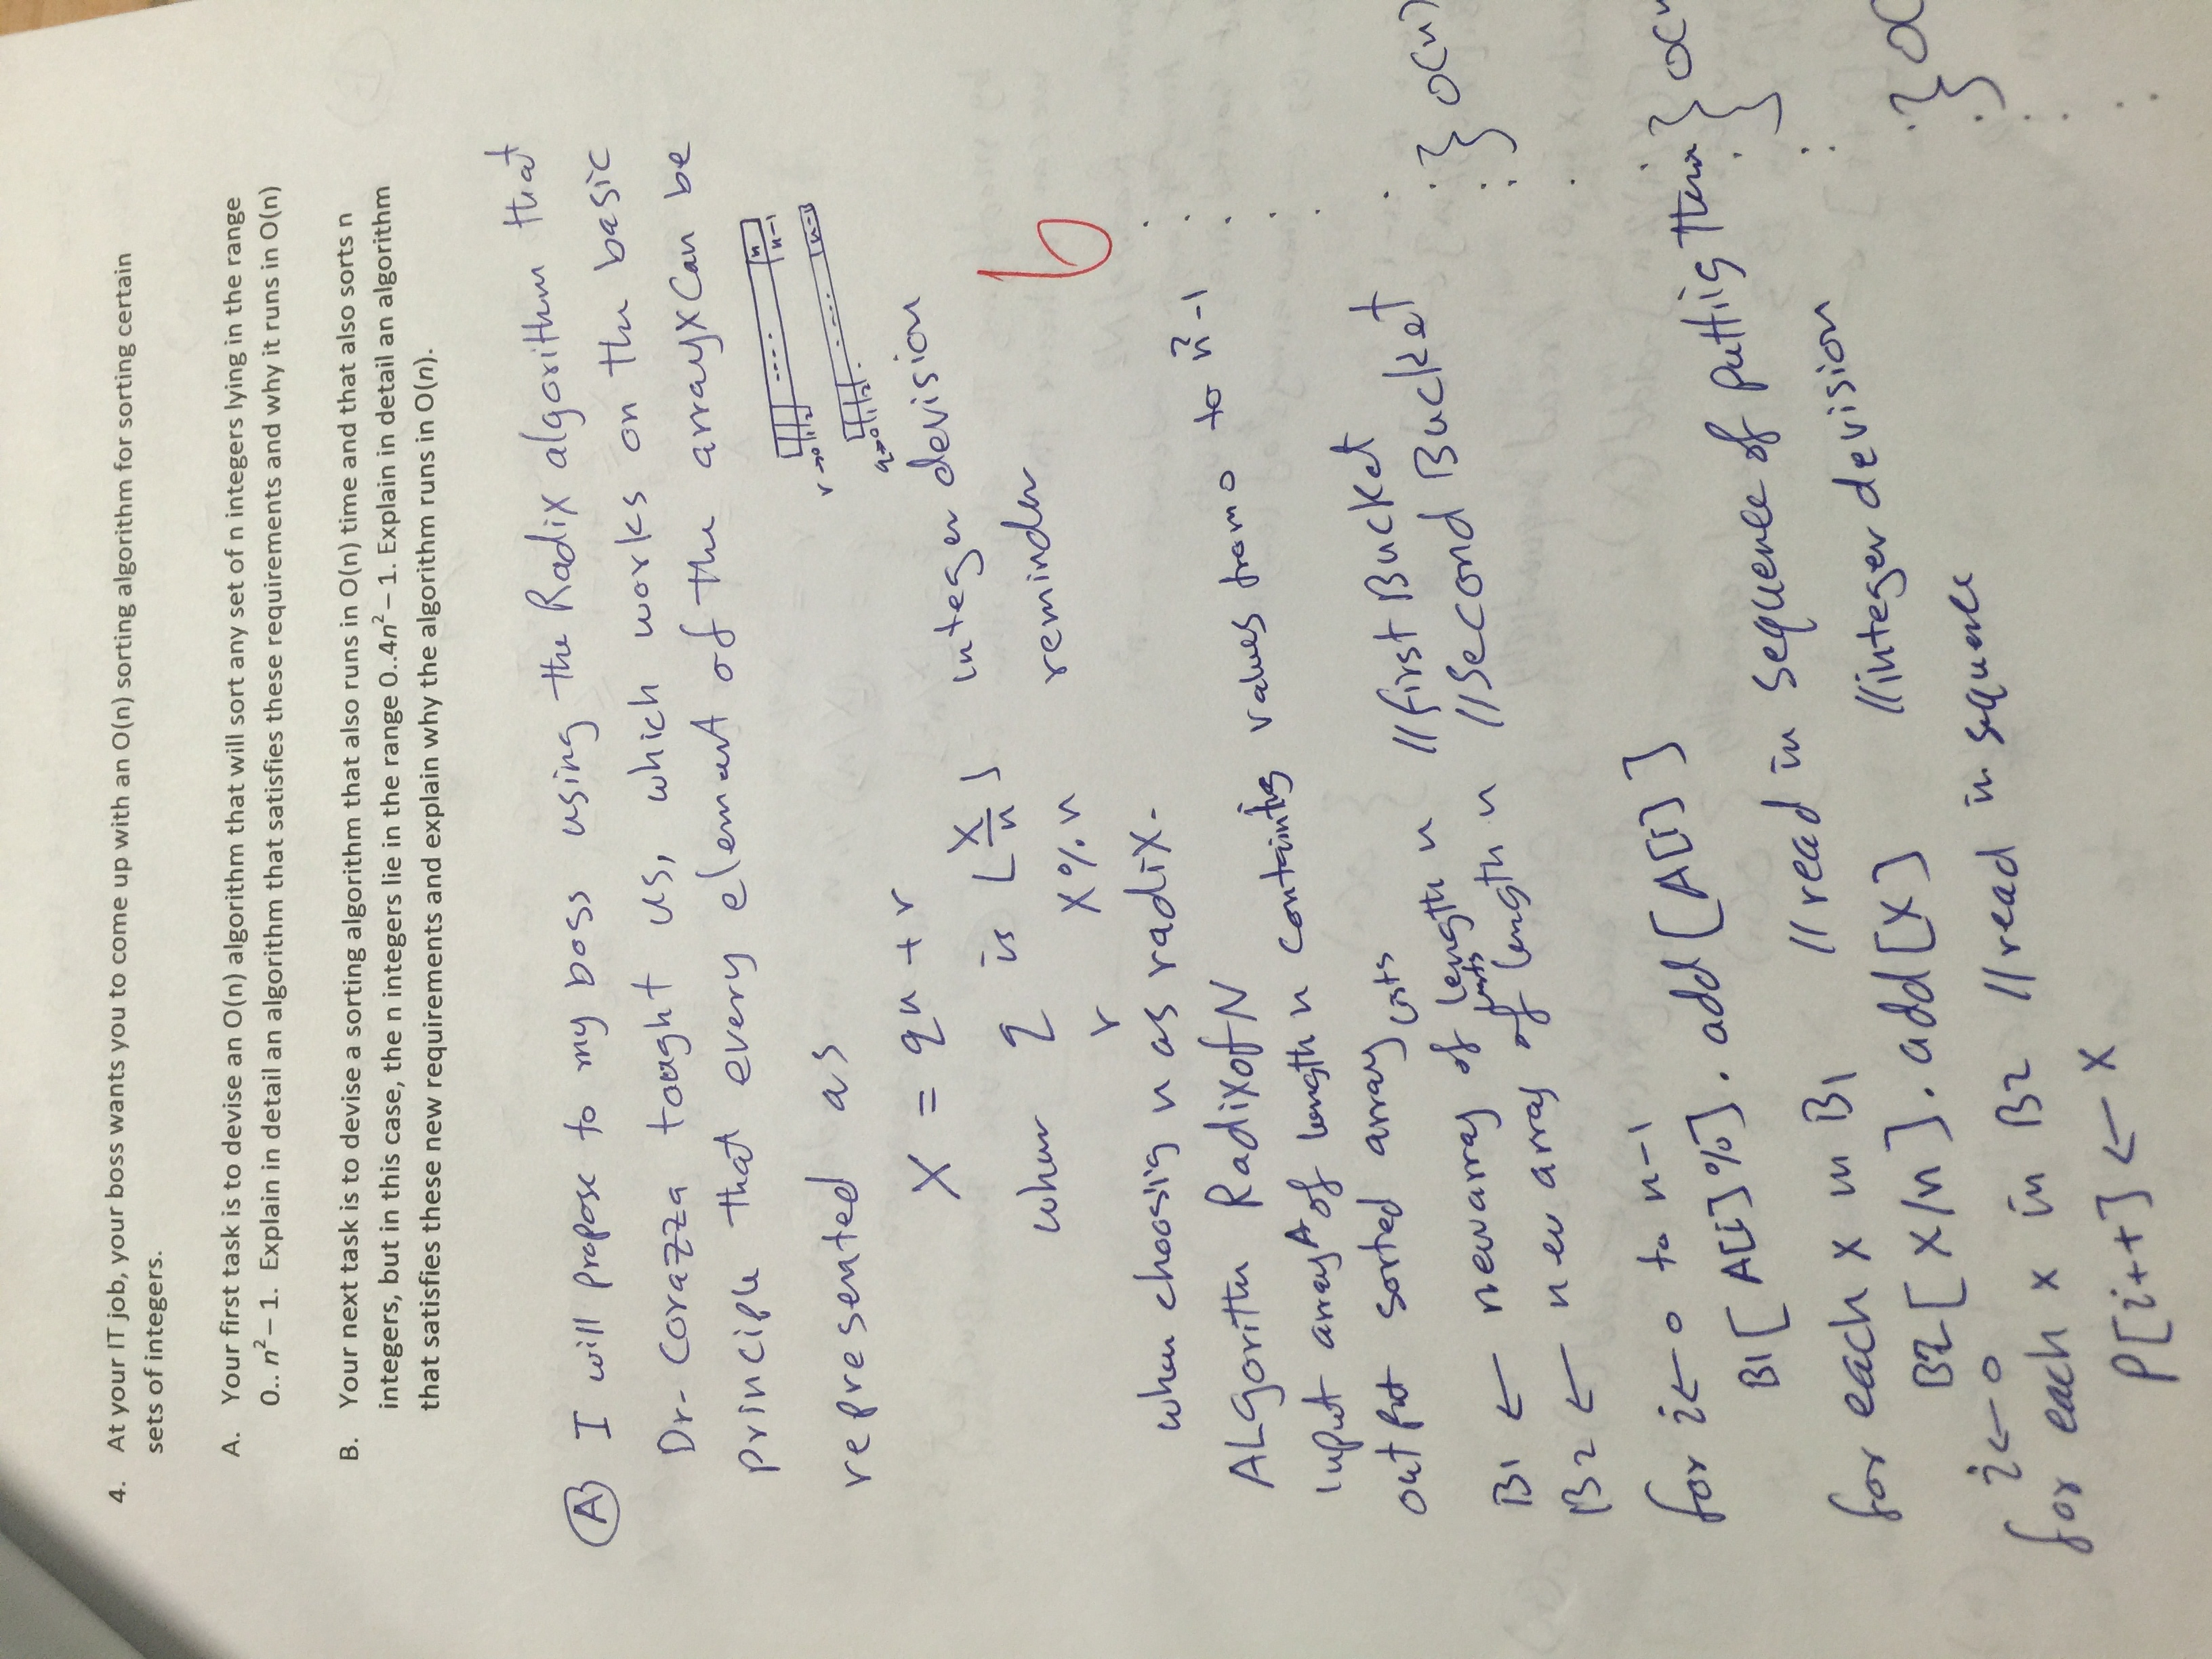 4. At your IT job, your boss wants you to come up with an O(n) sorting algorithm for sorting certain
sets of integers.
A. Your first task is to devise an O(n) algorithm that will sort any set of n integers lying in the range
0.. n² – 1. Explain in detail an algorithm that satisfies these requirements and why it runs in O(n)
B. Your next task is to devise a sorting algorithm that also runs in O(n) time and that also sorts n
integers, but in this case, the n integers lie in the range 0..4n² – 1. Explain in detail an algorithm
that satisfies these new requirements and explain why the algorithm runs in O(n).
A I will propose to my boss using the Radix algorithm that
Dr- Corazza tought us, which works on the basic
principle that every element of the array x can be
represented as
r → 0 1 2 .... n n-1
q → 0 1 2 .... n-1
X = qn + r
when q is ⌊X/n⌋ integer devision
r X%n reminder
6
when choosiig n as radix.
ALgorithm RadixofN
Input array A of length n containtig values from 0 to n²-1
output sorted array
B1 ← new array of lists length n //first Bucket
B2 ← new array of lists length n //Second Bucket } O(n)
for i ← 0 to n-1
B1[A[i]%]. add [A[i]]
for each x in B1 //read in sequence of puttiig them } O(n
B2[x/n]. add[x] //integer devision
i ← 0 } O(
for each x in B2 //read in sequence
P[i++] ← x